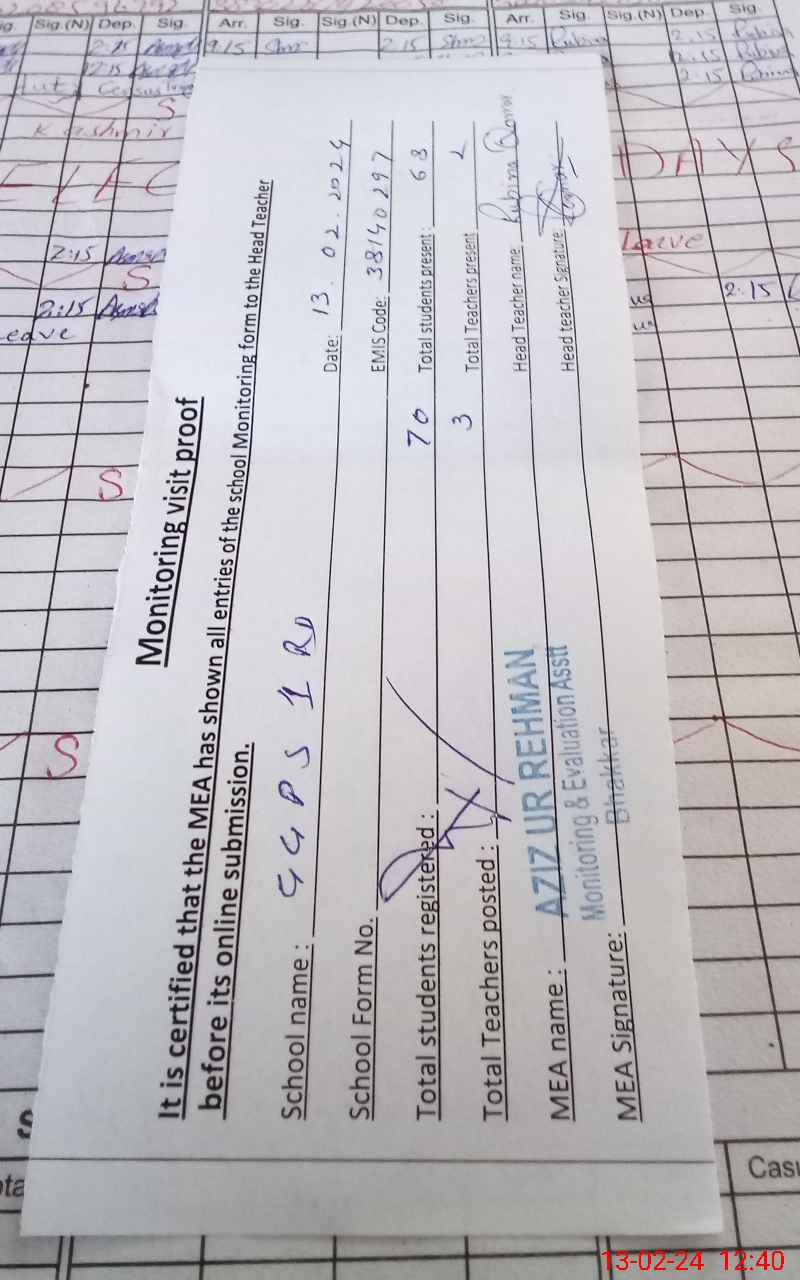 Sig.(N) Dep. Sig. Arr. Sig. Sig.(N) Dep. Sig. Arr. Sig. Sig.(N) Dep. Sig.
2:15 9:15 2:15 9:15 Rubina 2:15
12:15 2:15
2:15
S
Kashmir
DAYS
2:15
S
Leave
2:15
2:15
eave
S
S
Monitoring visit proof
It is certified that the MEA has shown all entries of the school Monitoring form to the Head Teacher
before its online submission.
School name : GGPS 1 RD Date: 13.02.2024
School Form No. EMIS Code: 38140297
Total students registered : 70 Total students present : 68
Total Teachers posted : 3 Total Teachers present 2
MEA name : AZIZ UR REHMAN Head Teacher name: Rubina
Monitoring & Evaluation Asstt
Bhakkar
MEA Signature: Head teacher Signature:
13-02-24 12:40